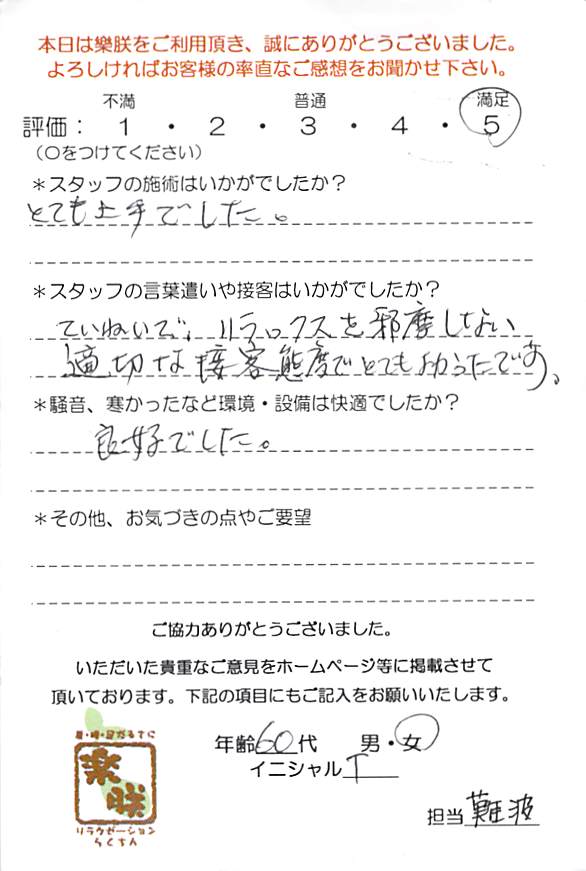 本日は樂朕をご利用頂き、誠にありがとうございました。
よろしければお客様の率直なご感想をお聞かせ下さい。
不満 普通 満足
評価： 1 ・ 2 ・ 3 ・ 4 ・ 5
（○をつけてください）
＊スタッフの施術はいかがでしたか？
とても上手でした。
＊スタッフの言葉遣いや接客はいかがでしたか？
ていねいで、リラックスを邪魔しない
適切な接客態度でとてもよかったです。
＊騒音、寒かったなど環境・設備は快適でしたか？
良好でした。
＊その他、お気づきの点やご要望
ご協力ありがとうございました。
いただいた貴重なご意見をホームページ等に掲載させて
頂いております。下記の項目にもご記入をお願いいたします。
年齢60代 男・女
イニシャル T
担当 難波
樂朕
リラクゼーション
らくちん